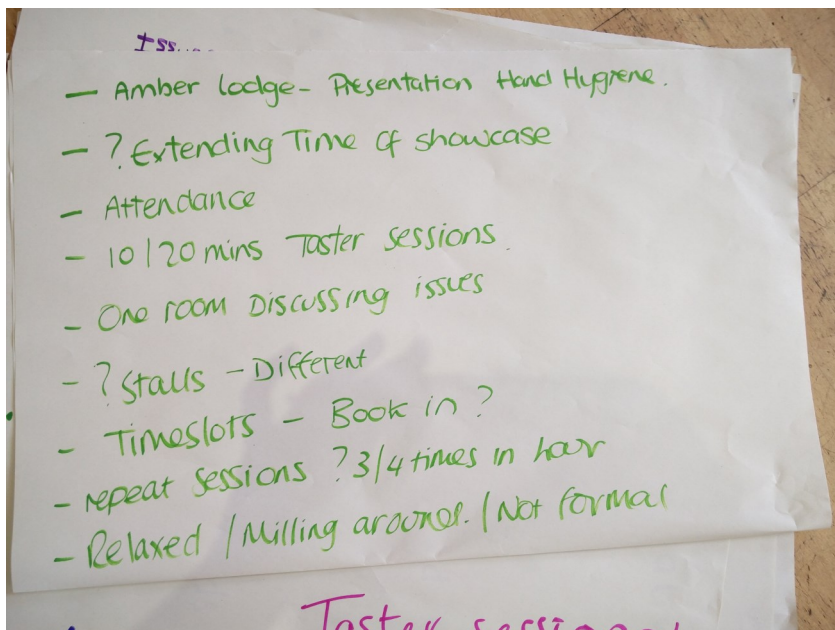 Iss...
— Amber Lodge - Presentation Hand Hygiene.
— ? Extending Time of showcase
— Attendance
- 10/20 mins Taster sessions.
- One room Discussing issues
- ? Stalls - Different
- Timeslots - Book in ?
- repeat sessions ? 3/4 times in hour
- Relaxed / Milling around. / Not formal
Taster sessions